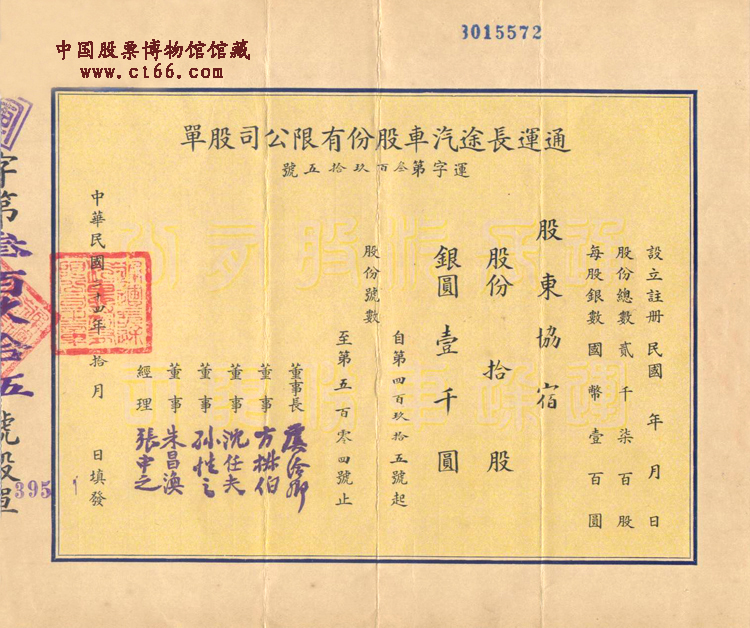 3015572
中国股票博物馆馆藏
www.ct66.com
通運長途汽車股份有限公司股單
運字第叁百玖拾五號
設立註册民國　年　月　日
股份總數貳千柒百股
每股銀數國幣壹百圓
股東協宿
股份拾股
銀圓壹千圓
股份號數
自第四百玖拾五號起
至第五百零四號止
董事長
董事
董事 沈仕夫
董事
董事 朱昌澳
經理 張中之
中華民國　年拾月　日填發
字第叁百玖拾五號股單
395